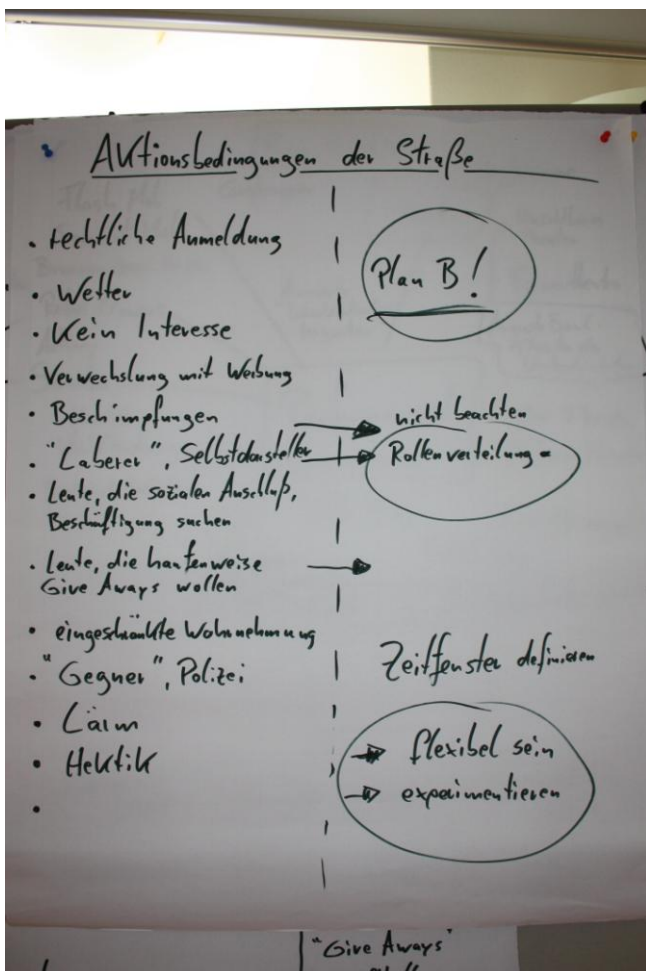 Aktionsbedingungen der Straße
• rechtliche Anmeldung
• Wetter
• Kein Interesse
• Verwechslung mit Werbung
• Beschimpfungen
• "Laberer", Selbstdarsteller
• Leute, die sozialen Anschluß,
Beschäftigung suchen
• Leute, die haufenweise
Give Aways wollen
• eingeschränkte Wahrnehmung
• "Gegner", Polizei
• Lärm
• Hektik
•
Plan B!
nicht beachten
Rollenverteilung
Zeitfenster definieren
→ flexibel sein
→ experimentieren
"Give Aways"